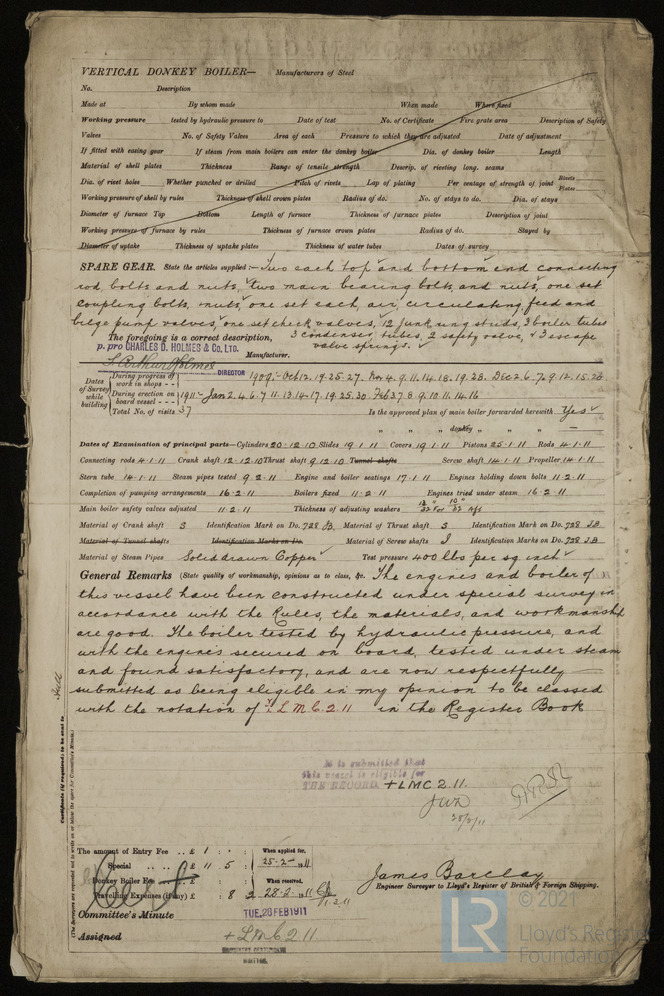 VERTICAL DONKEY BOILER— Manufacturers of Steel
No. Description
Made at By whom made When made Where fixed
Working pressure tested by hydraulic pressure to Date of test No. of Certificate Fire grate area Description of Safety
Valves No. of Safety Valves Area of each Pressure to which they are adjusted Date of adjustment
If fitted with easing gear If steam from main boilers can enter the donkey boiler Dia. of donkey boiler Length
Material of shell plates Thickness Range of tensile strength Descrip. of riveting long. seams
Dia. of rivet holes Whether punched or drilled Pitch of rivets Lap of plating Per centage of strength of joint Rivets Plates
Working pressure of shell by rules Thickness of shell crown plates Radius of do. No. of stays to do. Dia. of stays
Diameter of furnace Top Bottom Length of furnace Thickness of furnace plates Description of joint
Working pressure of furnace by rules Thickness of furnace crown plates Radius of do. Stayed by
Diameter of uptake Thickness of uptake plates Thickness of water tubes Dates of survey
SPARE GEAR. State the articles supplied:— Two each top and bottom end connecting
rod bolts and nuts, two main bearing bolts and nuts, one set
coupling bolts, nuts, one set each, air, circulating feed and
bilge pump valves, one set check valves, 12 junk ring studs, 3 boiler tubes
3 condenser tubes, 2 safety valve, + 3 escape
valve springs.
The foregoing is a correct description,
p. pro CHARLES D. HOLMES & Co. LTD.
Manufacturer.
Arthur Holmes DIRECTOR
Dates of Survey while building
During progress of work in shops - - 1909:- Oct 12. 19. 25. 27. Nov 4. 9. 11. 14. 18. 19. 28. Dec 2. 6. 7. 9. 12. 15. 28
During erection on board vessel - - - 1911:- Jan 2. 4. 6. 7. 11. 13. 14. 17. 19. 25. 30. Feb 3. 7. 8. 9. 10. 11. 14. 16
Total No. of visits 37 Is the approved plan of main boiler forwarded herewith Yes
" " donkey " " " —
Dates of Examination of principal parts—Cylinders 20.12.10 Slides 19.1.11 Covers 19.1.11 Pistons 25.1.11 Rods 4.1.11
Connecting rods 4.1.11 Crank shaft 12.12.10 Thrust shaft 9.12.10 Tunnel shafts Screw shaft 14.1.11 Propeller 14.1.11
Stern tube 14.1.11 Steam pipes tested 9.2.11 Engine and boiler seatings 17.1.11 Engines holding down bolts 11.2.11
Completion of pumping arrangements 16.2.11 Boilers fixed 11.2.11 Engines tried under steam 16.2.11
Main boiler safety valves adjusted 11.2.11 Thickness of adjusting washers
Material of Crank shaft S Identification Mark on Do. 728 JB. Material of Thrust shaft S Identification Mark on Do. 728 JB
Material of Tunnel shafts Identification Marks on Do. Material of Screw shafts S Identification Marks on Do. 728 JB
Material of Steam Pipes Solid drawn Copper Test pressure 400 lbs per sq inch
General Remarks (State quality of workmanship, opinions as to class, &c. The engines and boiler of
this vessel have been constructed under special survey in
accordance with the Rules, the materials, and workmanship
are good. The boiler tested by hydraulic pressure, and
with the engines secured on board, tested under steam
and found satisfactory, and are now respectfully
submitted as being eligible in my opinion to be classed
with the notation of + L M C. 2. 11 in the Register Book
It is submitted that
this vessel is eligible for
THE RECORD. + LMC 2.11.
JWD
28/2/11
Certificate (if required) to be sent to Hull
(The Surveyors are requested not to write on or below the space for Committee's Minute.)
The amount of Entry Fee .. £ 1 : - : When applied for,
Special .. .. £ 11 : 5 : 25.2.1911
Donkey Boiler Fee .. £ : : When received,
Travelling Expenses (if any) £ : 8 : 2 28.2.1911
James Barclay
Engineer Surveyor to Lloyd's Register of British & Foreign Shipping.
Committee's Minute TUE. 28 FEB 1911
Assigned + L M C 2 11
WRITTEN.
LR
© 2021
Lloyd's Register
Foundation